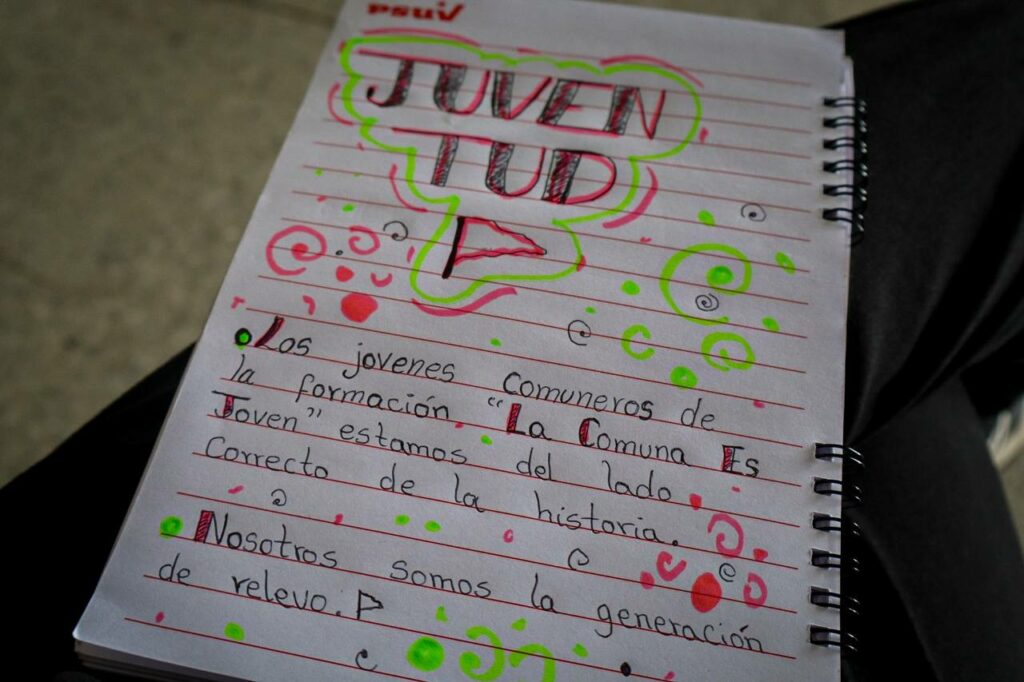 PSUV
JUVEN
TUD
Los jovenes comuneros de
la formación "La Comuna Es
Joven" estamos del lado
Correcto de la historia.
Nosotros somos la generación
de relevo.